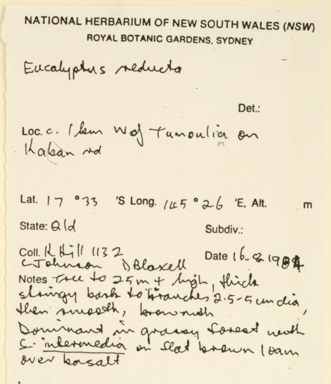 NATIONAL HERBARIUM OF NEW SOUTH WALES (NSW)
ROYAL BOTANIC GARDENS, SYDNEY
Eucalyptus reducta
Det.:
Loc. c. 1km W of Tumoulin on
Kaban rd
Lat. 17 ° 33 'S Long. 145 ° 26 'E, Alt. m
State: Qld Subdiv.:
Coll. K Hill 1132 Date 16-8-1984
L Johnson D Blaxell
Notes Tree to 25m high, thick
stringy bark to branches 2.5-5cm dia,
then smooth, brownish
Dominant in grassy forest with
E. intermedia on flat brown loam
over basalt